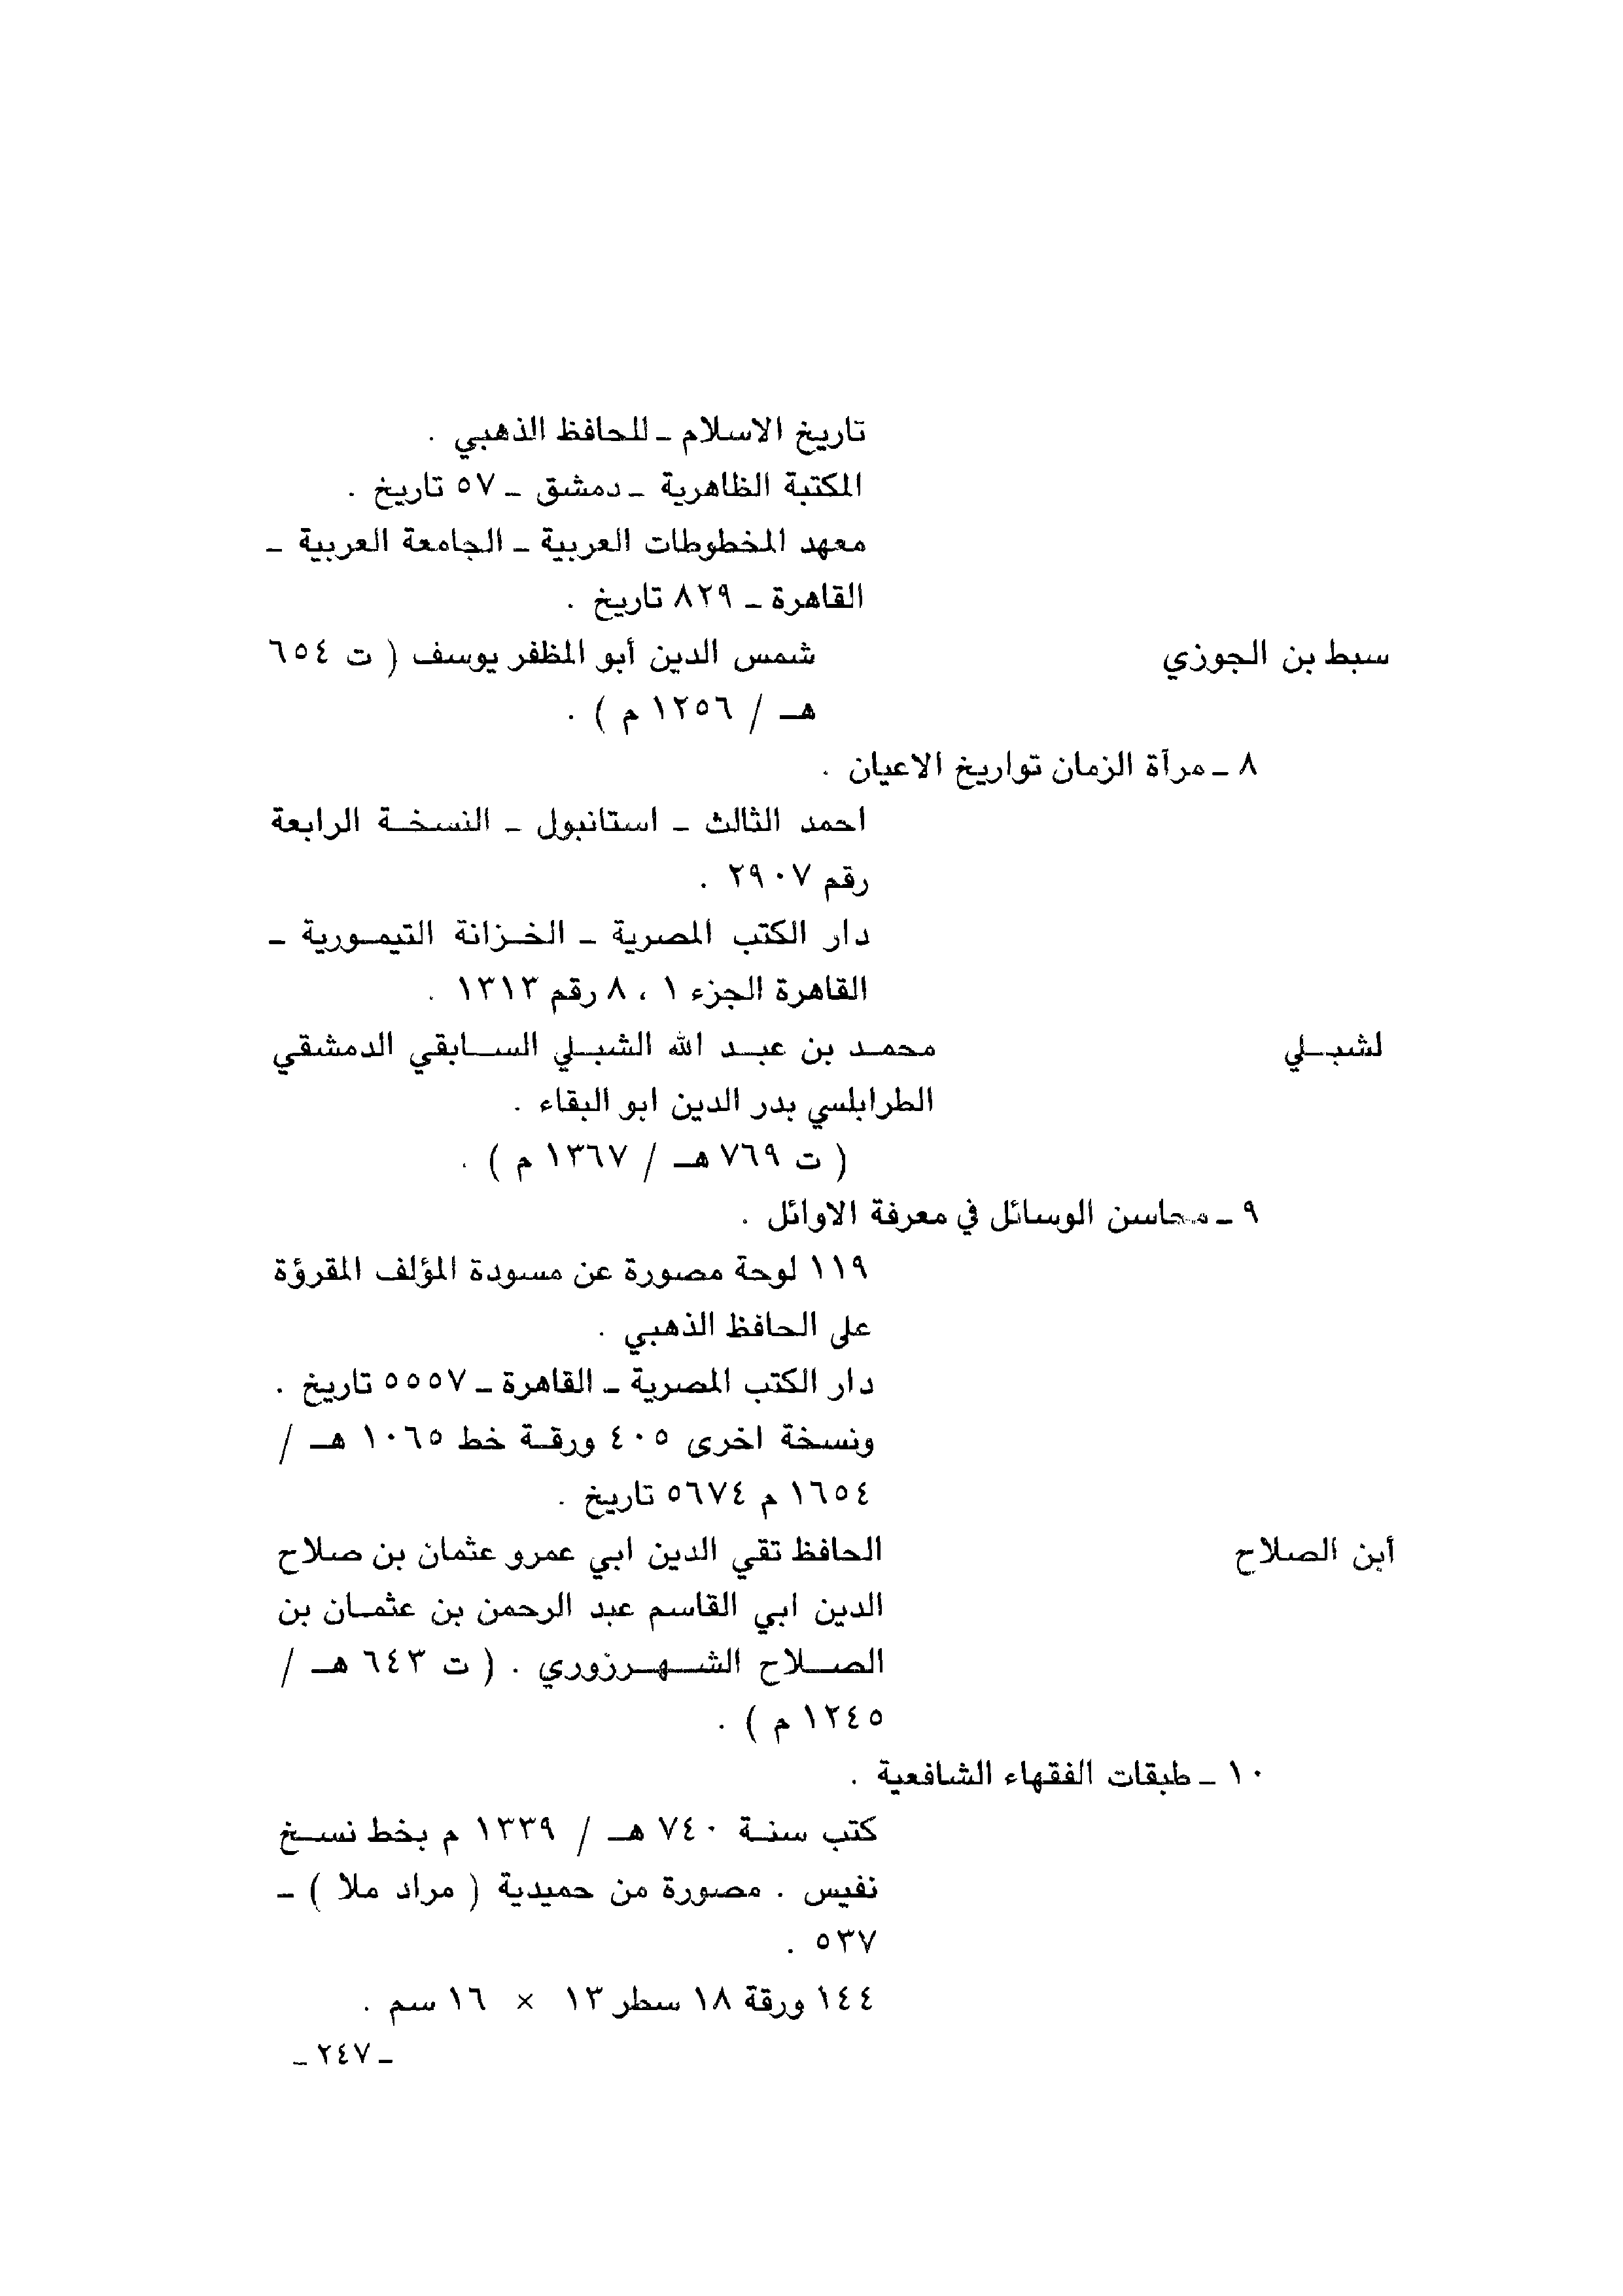 تاريخ الاسلام ـ للحافظ الذهبي .
المكتبة الظاهرية ـ دمشق ـ ٥٧ تاريخ .
معهد المخطوطات العربية ـ الجامعة العربية ـ
القاهرة ـ ٨٢٩ تاريخ .
سبط بن الجوزي شمس الدين أبو المظفر يوسف ( ت ٦٥٤
هـ / ١٢٥٦ م ) .
٨ ـ مرآة الزمان تواريخ الاعيان .
احمد الثالث ـ استانبول ـ النسخة الرابعة
رقم ٢٩٠٧ .
دار الكتب المصرية ـ الخزانة التيمورية ـ
القاهرة الجزء ١ ، ٨ رقم ١٣١٣ .
لشبلي محمد بن عبد الله الشبلي السابقي الدمشقي
الطرابلسي بدر الدين ابو البقاء .
( ت ٧٦٩ هـ / ١٣٦٧ م ) .
٩ ـ محاسن الوسائل في معرفة الاوائل .
١١٩ لوحة مصورة عن مسودة المؤلف المقرؤة
على الحافظ الذهبي .
دار الكتب المصرية ـ القاهرة ـ ٥٥٥٧ تاريخ .
ونسخة اخرى ٤٠٥ ورقة خط ١٠٦٥ هـ /
١٦٥٤ م ٥٦٧٤ تاريخ .
أبن الصلاح الحافظ تقي الدين ابي عمرو عثمان بن صلاح
الدين ابي القاسم عبد الرحمن بن عثمان بن
الصلاح الشهرزوري . ( ت ٦٤٣ هـ /
١٢٤٥ م ) .
١٠ ـ طبقات الفقهاء الشافعية .
كتب سنة ٧٤٠ هـ / ١٣٣٩ م بخط نسخ
نفيس . مصورة من حميدية ( مراد ملا ) ـ
٥٣٧ .
١٤٤ ورقة ١٨ سطر ١٣ × ١٦ سم .
ـ ٢٤٧ ـ